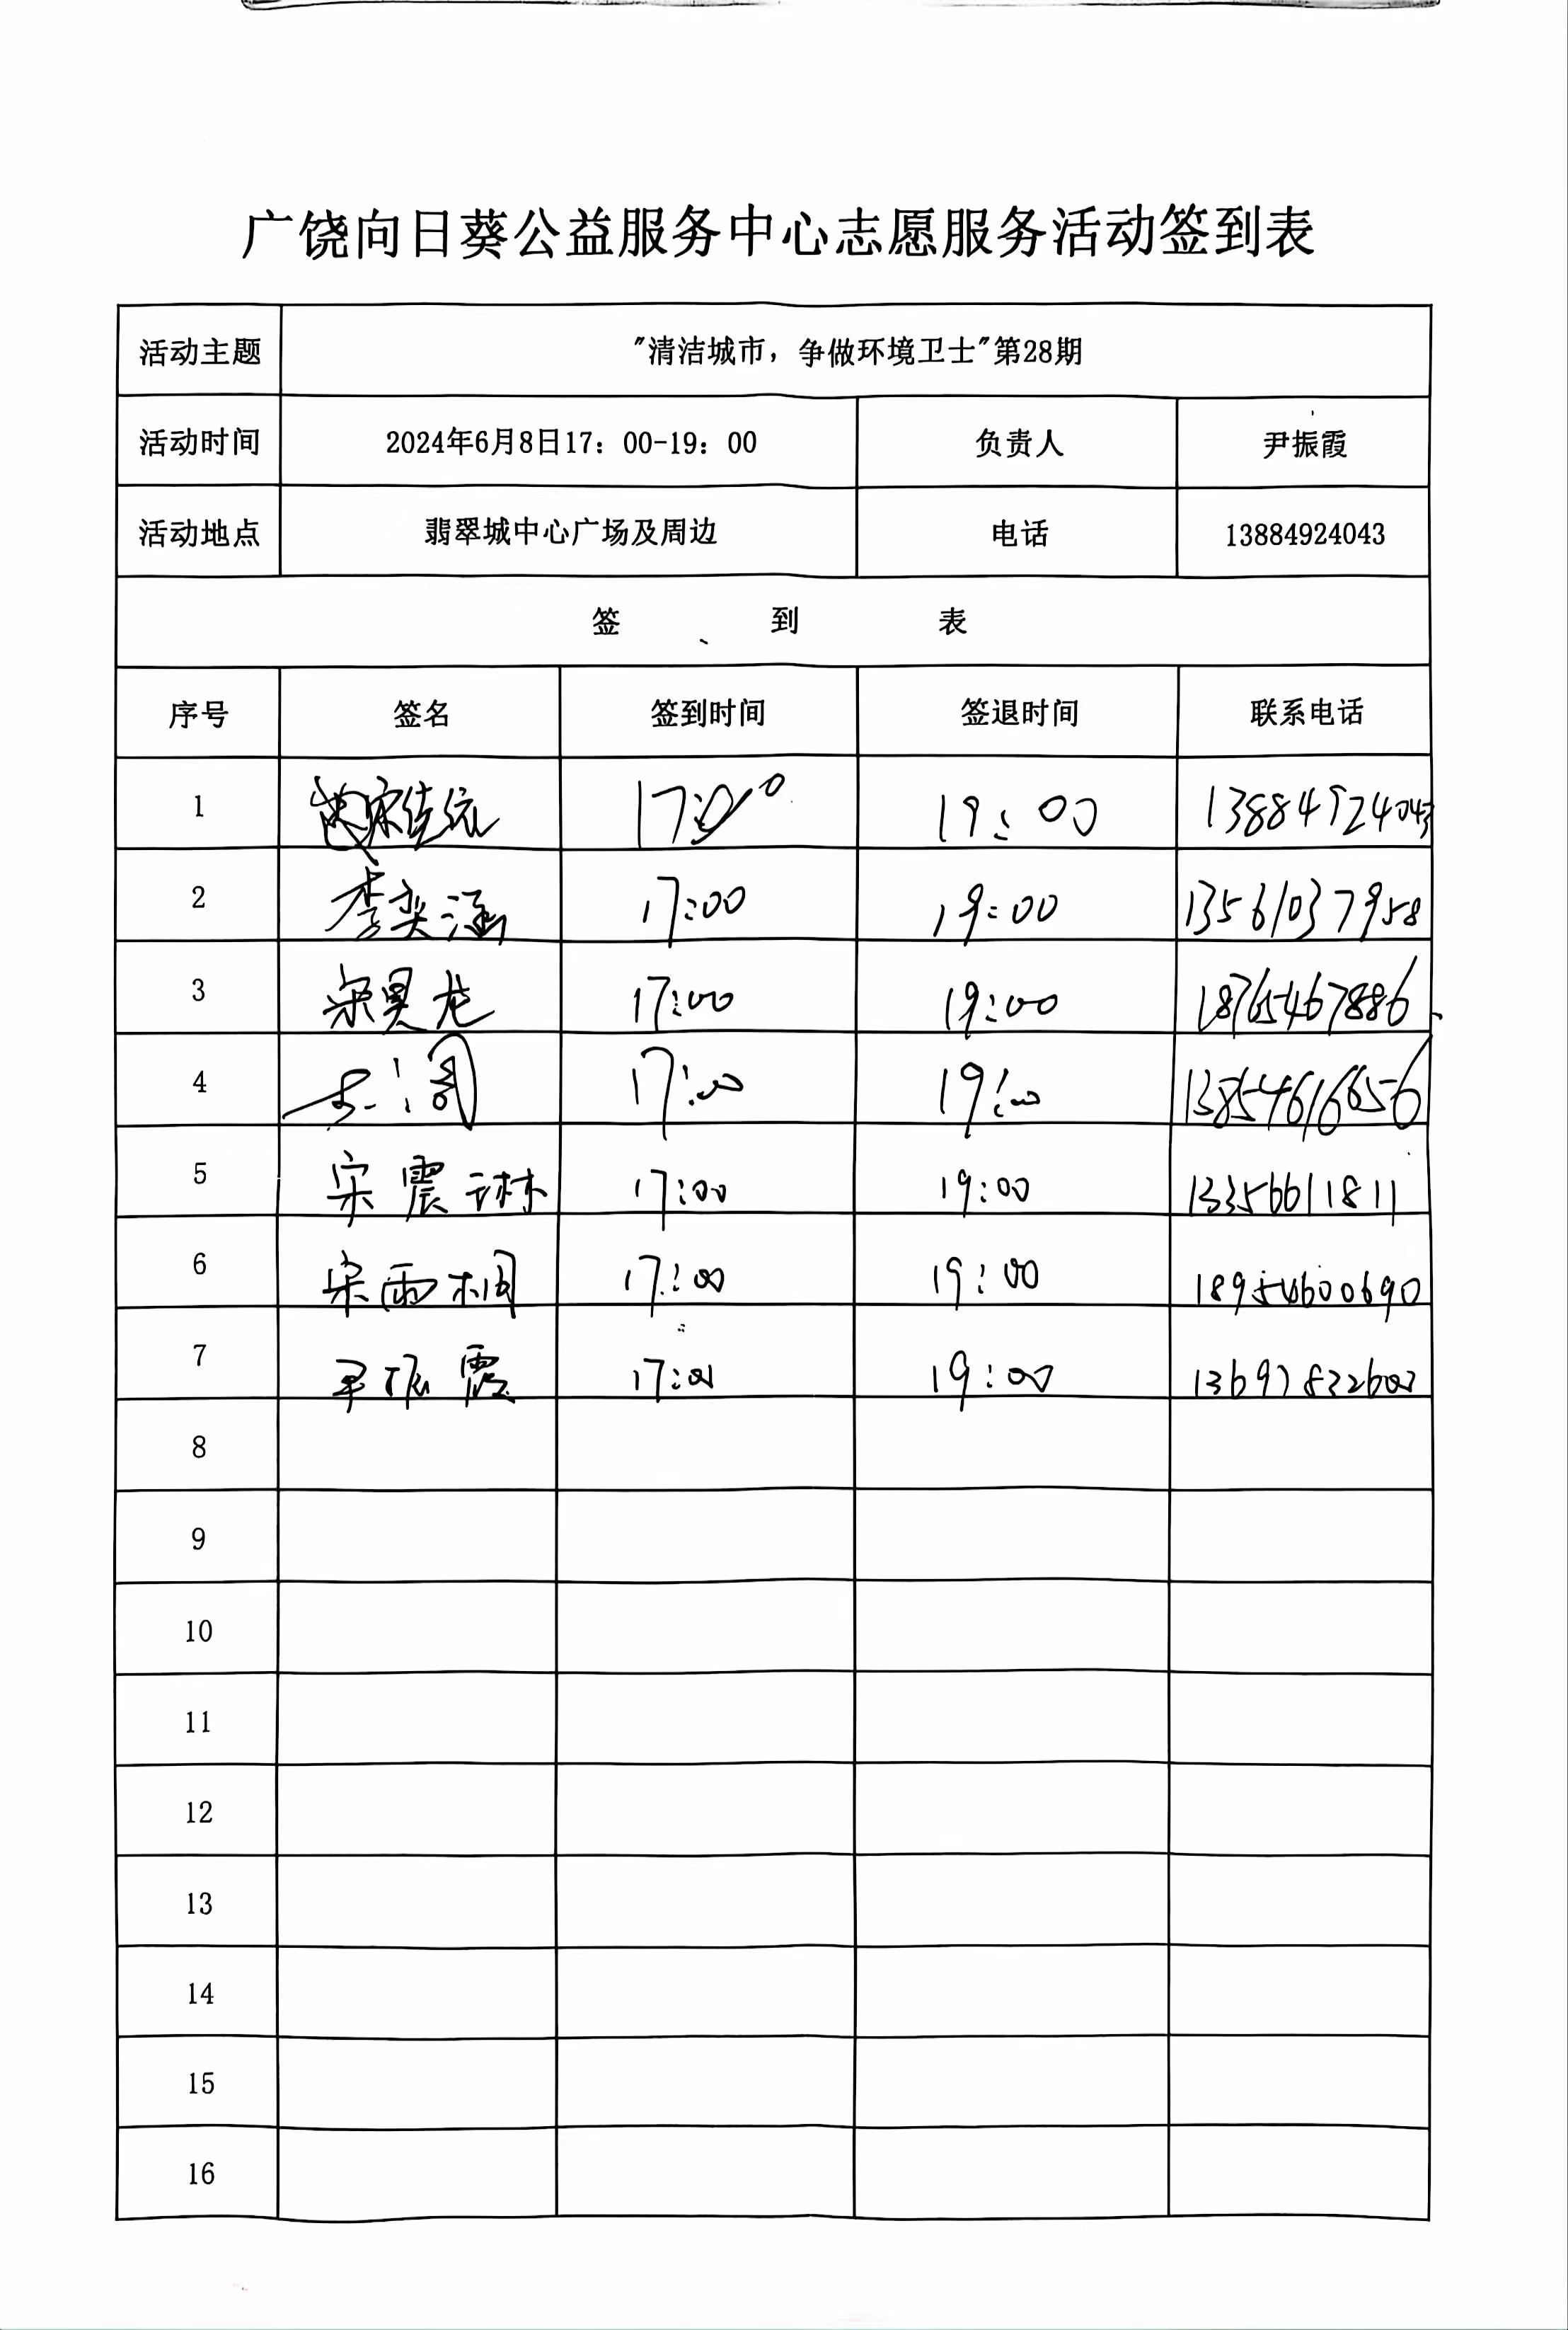 广饶向日葵公益服务中心志愿服务活动签到表
活动主题 "清洁城市，争做环境卫士"第28期
活动时间 2024年6月8日17：00-19：00 负责人 尹振霞
活动地点 翡翠城中心广场及周边 电话 13884924043
签 到 表
序号 签名 签到时间 签退时间 联系电话
1 17:00 19:00 13884924043
2 李奕涵 17:00 19:00 13561037958
3 宋昊龙 17:00 19:00 18765467886
4 17:00 19:00 13854616656
5 宋震琳 17:00 19:00 13356611811
6 宋雨桐 17:00 19:00 18954600690
7 尹振霞 17:00 19:00
8
9
10
11
12
13
14
15
16